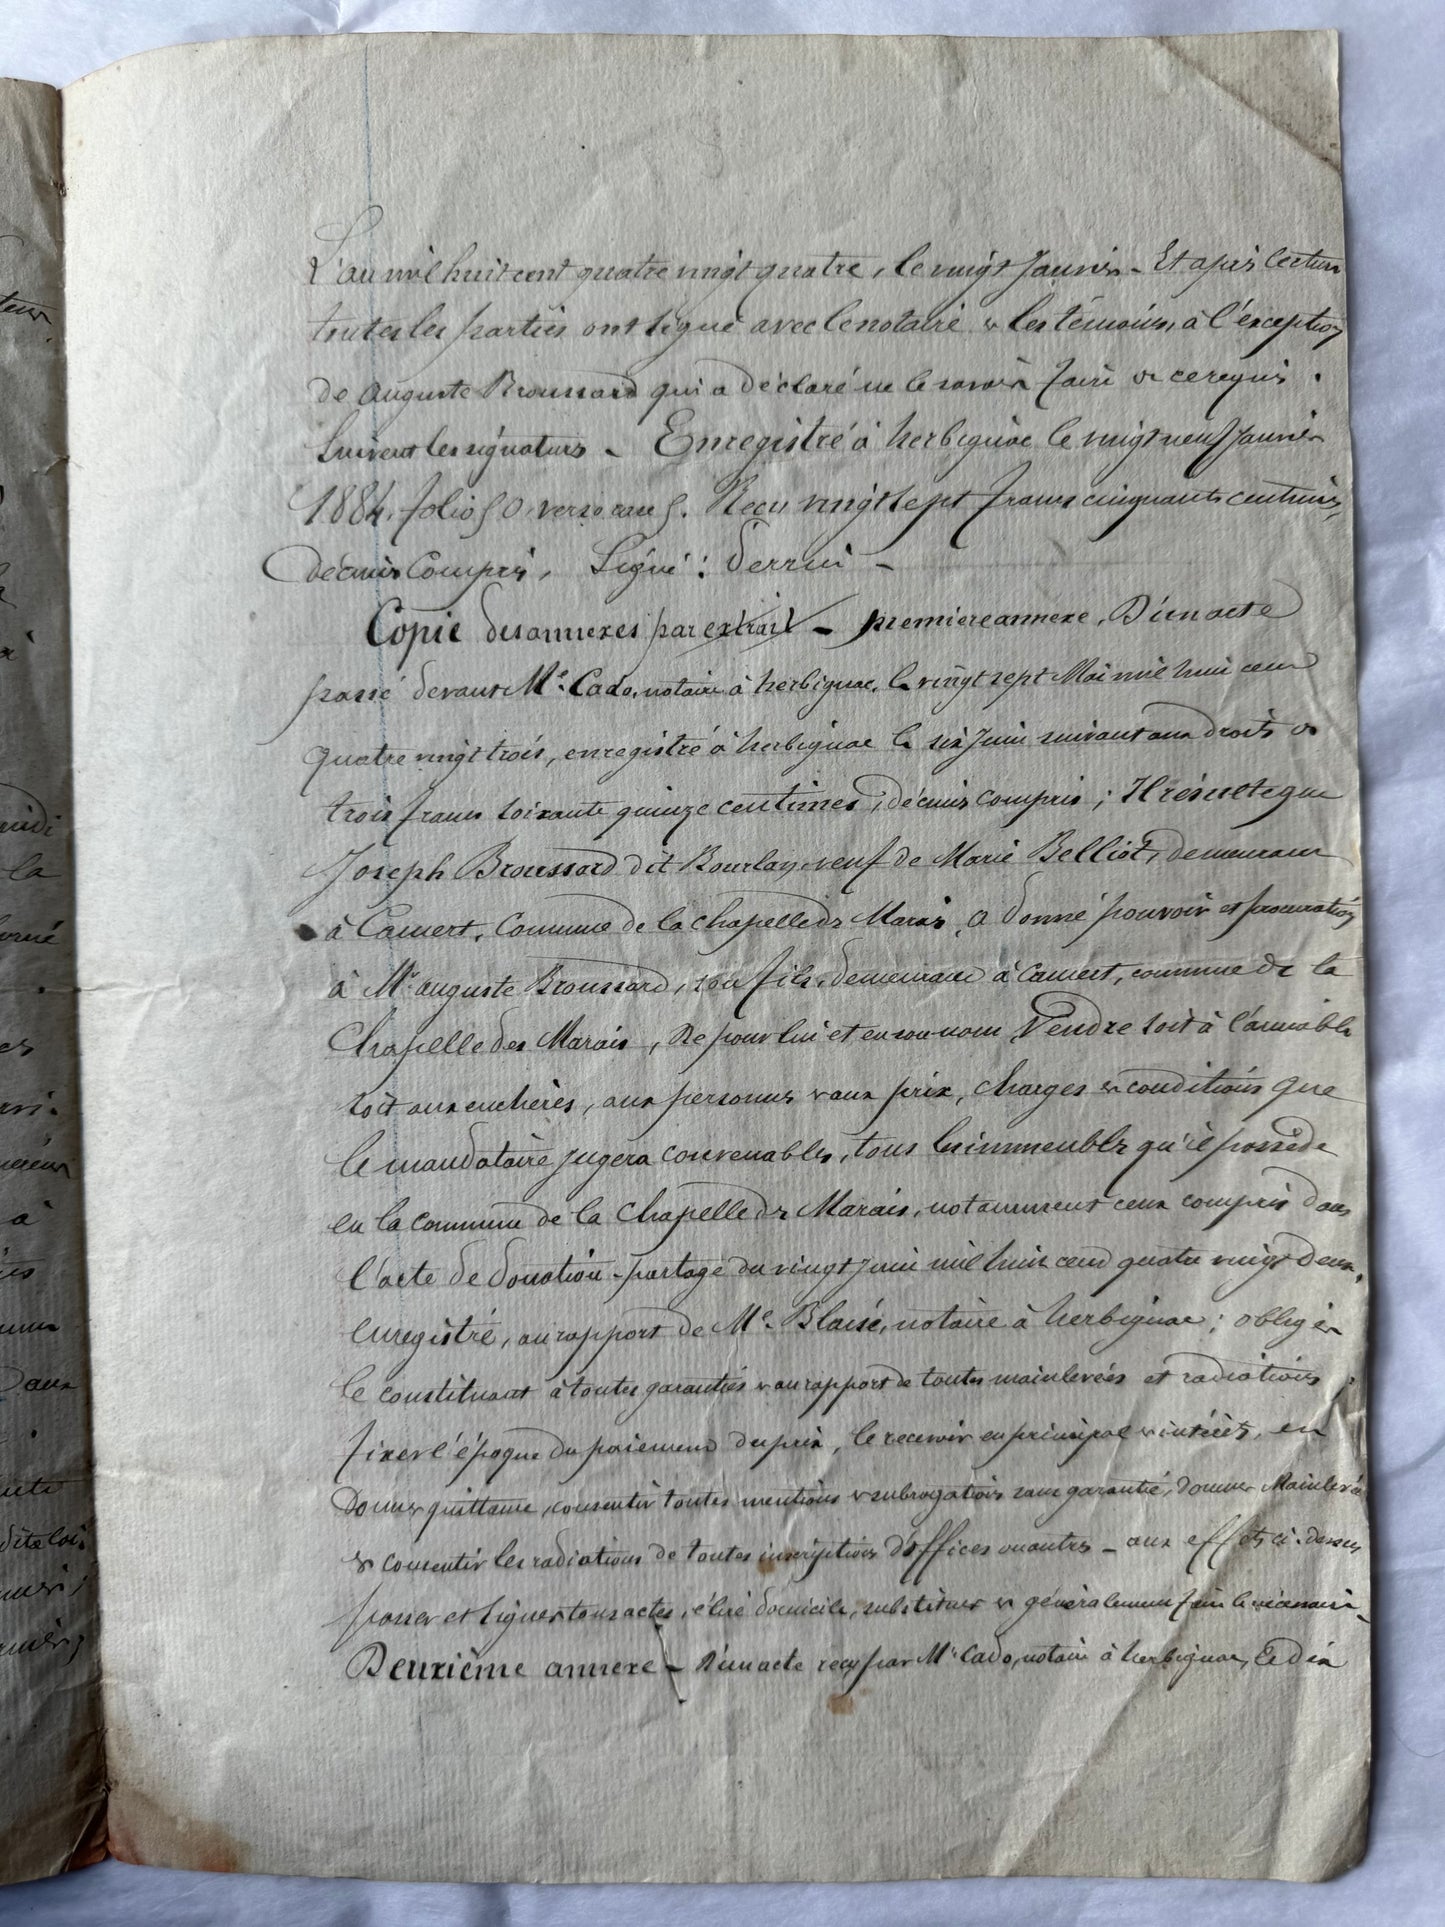 L'an mil huit cent quatre vingt quatre, le vingt Janvier - Et après lecture
toutes les parties ont signé avec le notaire & les témoins, à l'exception
de Auguste Broussard qui a déclaré ne le savoir faire de ce requis.
Suivent les signatures - Enregistré à herbignac le vingt neuf Janvier
1884, folio 50, verso case 5. Reçu vingt sept francs cinquante centimes,
décimes Compris, Signé: Perrin -
Copie des annexes par extrait - première annexe, D'un acte
passé devant Me Cado, notaire à herbignac, le vingt sept Mai mil huit cent
quatre vingt trois, enregistré à herbignac le six Juin suivant aux droits de
trois francs soixante quinze centimes, décimes compris; Il résulte que
Joseph Broussard dit Bourlay veuf de Marie Belliot, demeurant
à Camert, Commune de la chapelle des Marais, a donné pouvoir et procuration
à Mr auguste Broussard, son fils, demeurant à Camert, commune de la
Chapelle des Marais, De pour lui et en son nom Vendre soit à l'amiable
soit aux enchères, aux personnes & aux prix, charges & conditions que
le mandataire jugera convenables, tous les immeubles qu'il possède
en la commune de la Chapelle des Marais, notamment ceux compris dans
l'acte de donation-partage du vingt juin mil huit cent quatre vingt deux,
enregistré, au rapport de Me Blaisé, notaire à herbignac; obliger
le constituant à toutes garanties & au rapport de toutes mainlevées et radiations;
fixer l'époque du paiement du prix, le recevoir en principal & intérêts, en
Donner quittance, consentir toutes mentions & subrogations sans garantie, donner Mainlevée
& consentir les radiations de toutes inscriptions d'offices ou autres - aux effets ci-dessus
passer et signer tous actes, élire domicile, substituer & généralement faire le nécessaire -
Deuxième annexe - D'un acte reçu par Me Cado, notaire à herbignac, le dix